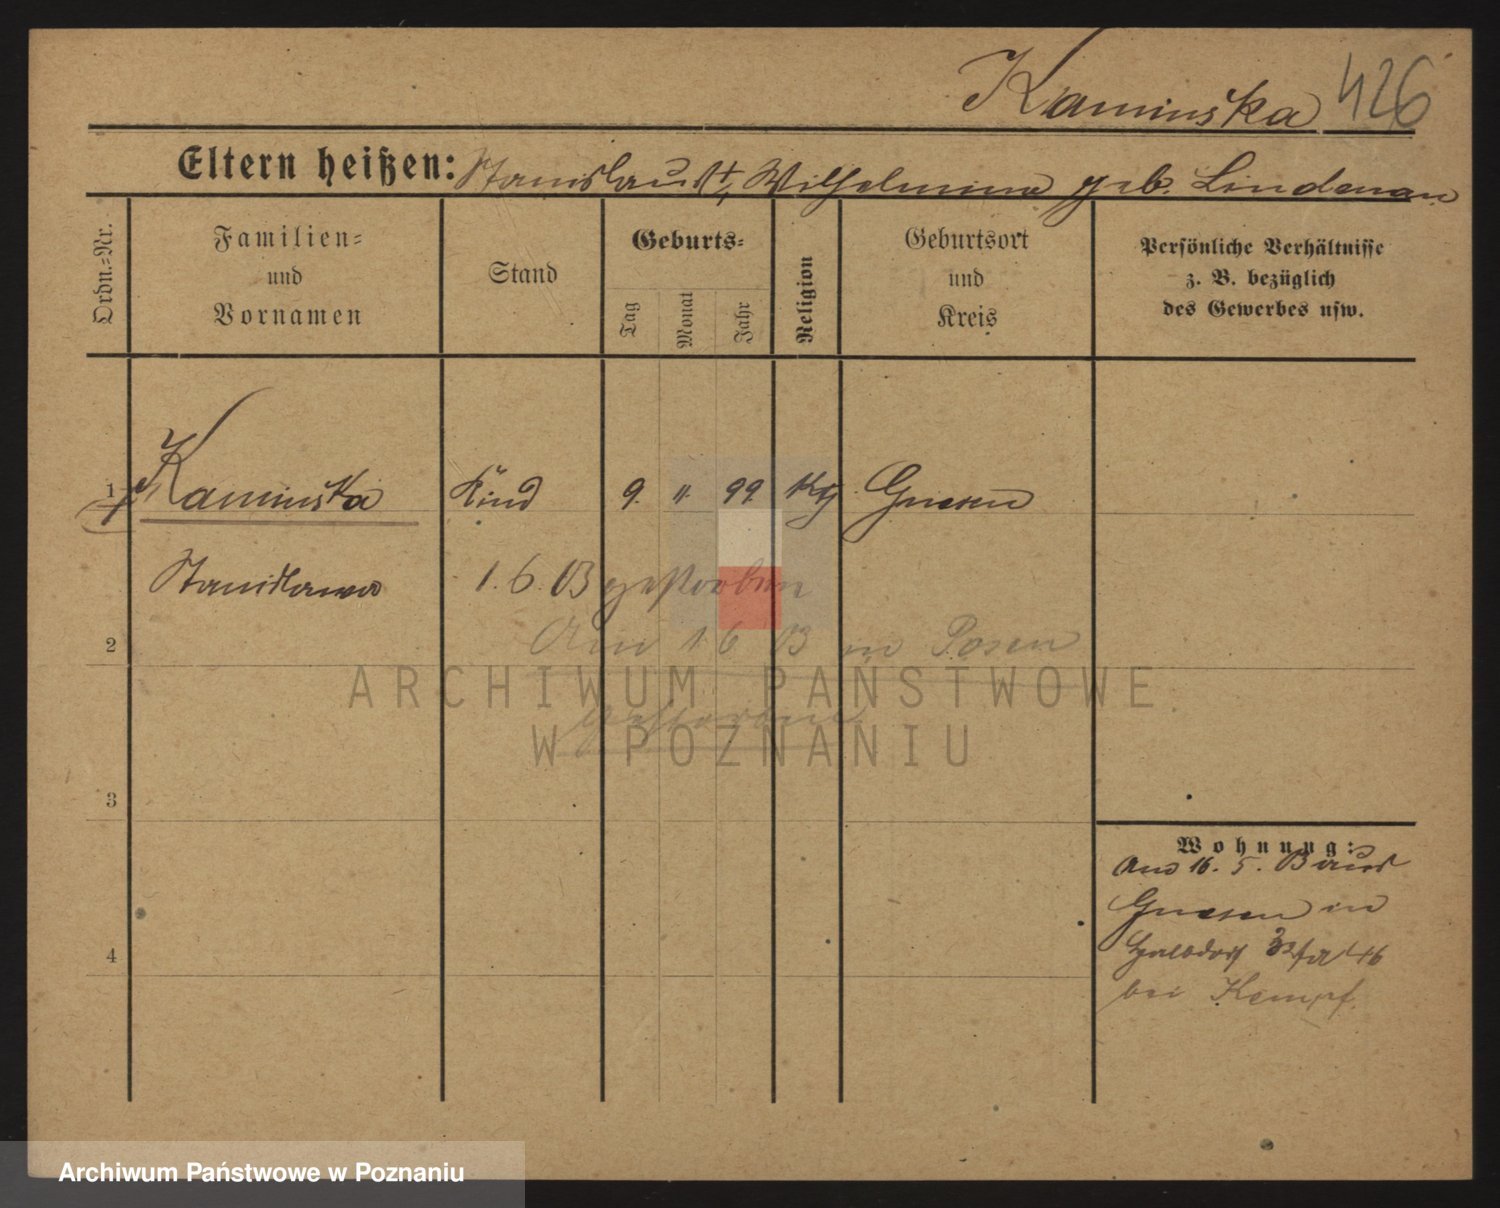 Kaminska 426
Eltern heißen: Stanislaus †, Wilhelmine geb. Lindenau
Ordn.-Nr.
Familien-
und
Vornamen
Stand
Geburts-
Tag
Monat
Jahr
Religion
Geburtsort
und
Kreis
Persönliche Verhältnisse
z. B. bezüglich
des Gewerbes usw.
1 Kaminska Kind 9. 11. 99. Gnesen
Stanislawa 1. 6. 03 gestorben
2
Am 1 6 03 in Posen
gestorben
3
4
Wohnung:
Am 16. 5. 03 aus
Gnesen in
46
bei Kempf.
ARCHIWUM PAŃSTWOWE
W POZNANIU
Archiwum Państwowe w Poznaniu